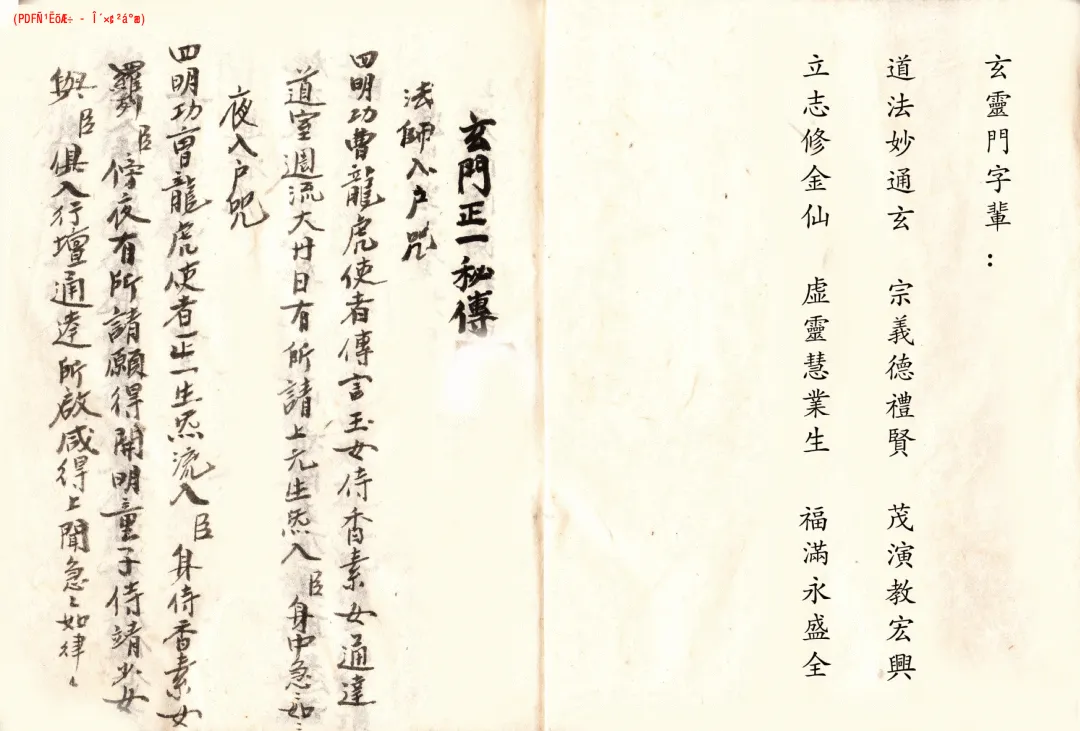 (PDFÑ¹ËõÆ÷ - Î´×¢²á°æ)
玄靈門字輩：
道法妙通玄 宗義德禮賢 茂演教宏興
立志修金仙 虛靈慧業生 福滿永盛全
玄門正一秘傳
法師入户咒
四明功曹龍虎使者傳言玉女侍香素女通達
道室週流大丹日有所請上元生炁入臣身中急〻如〻
夜入户咒
四明功曹龍虎使者正一生炁流入臣身侍香素女
羅列臣傍夜有所請願得開明童子侍靖少女
與臣俱入行壇通達所啟咸得上聞急〻如律〻